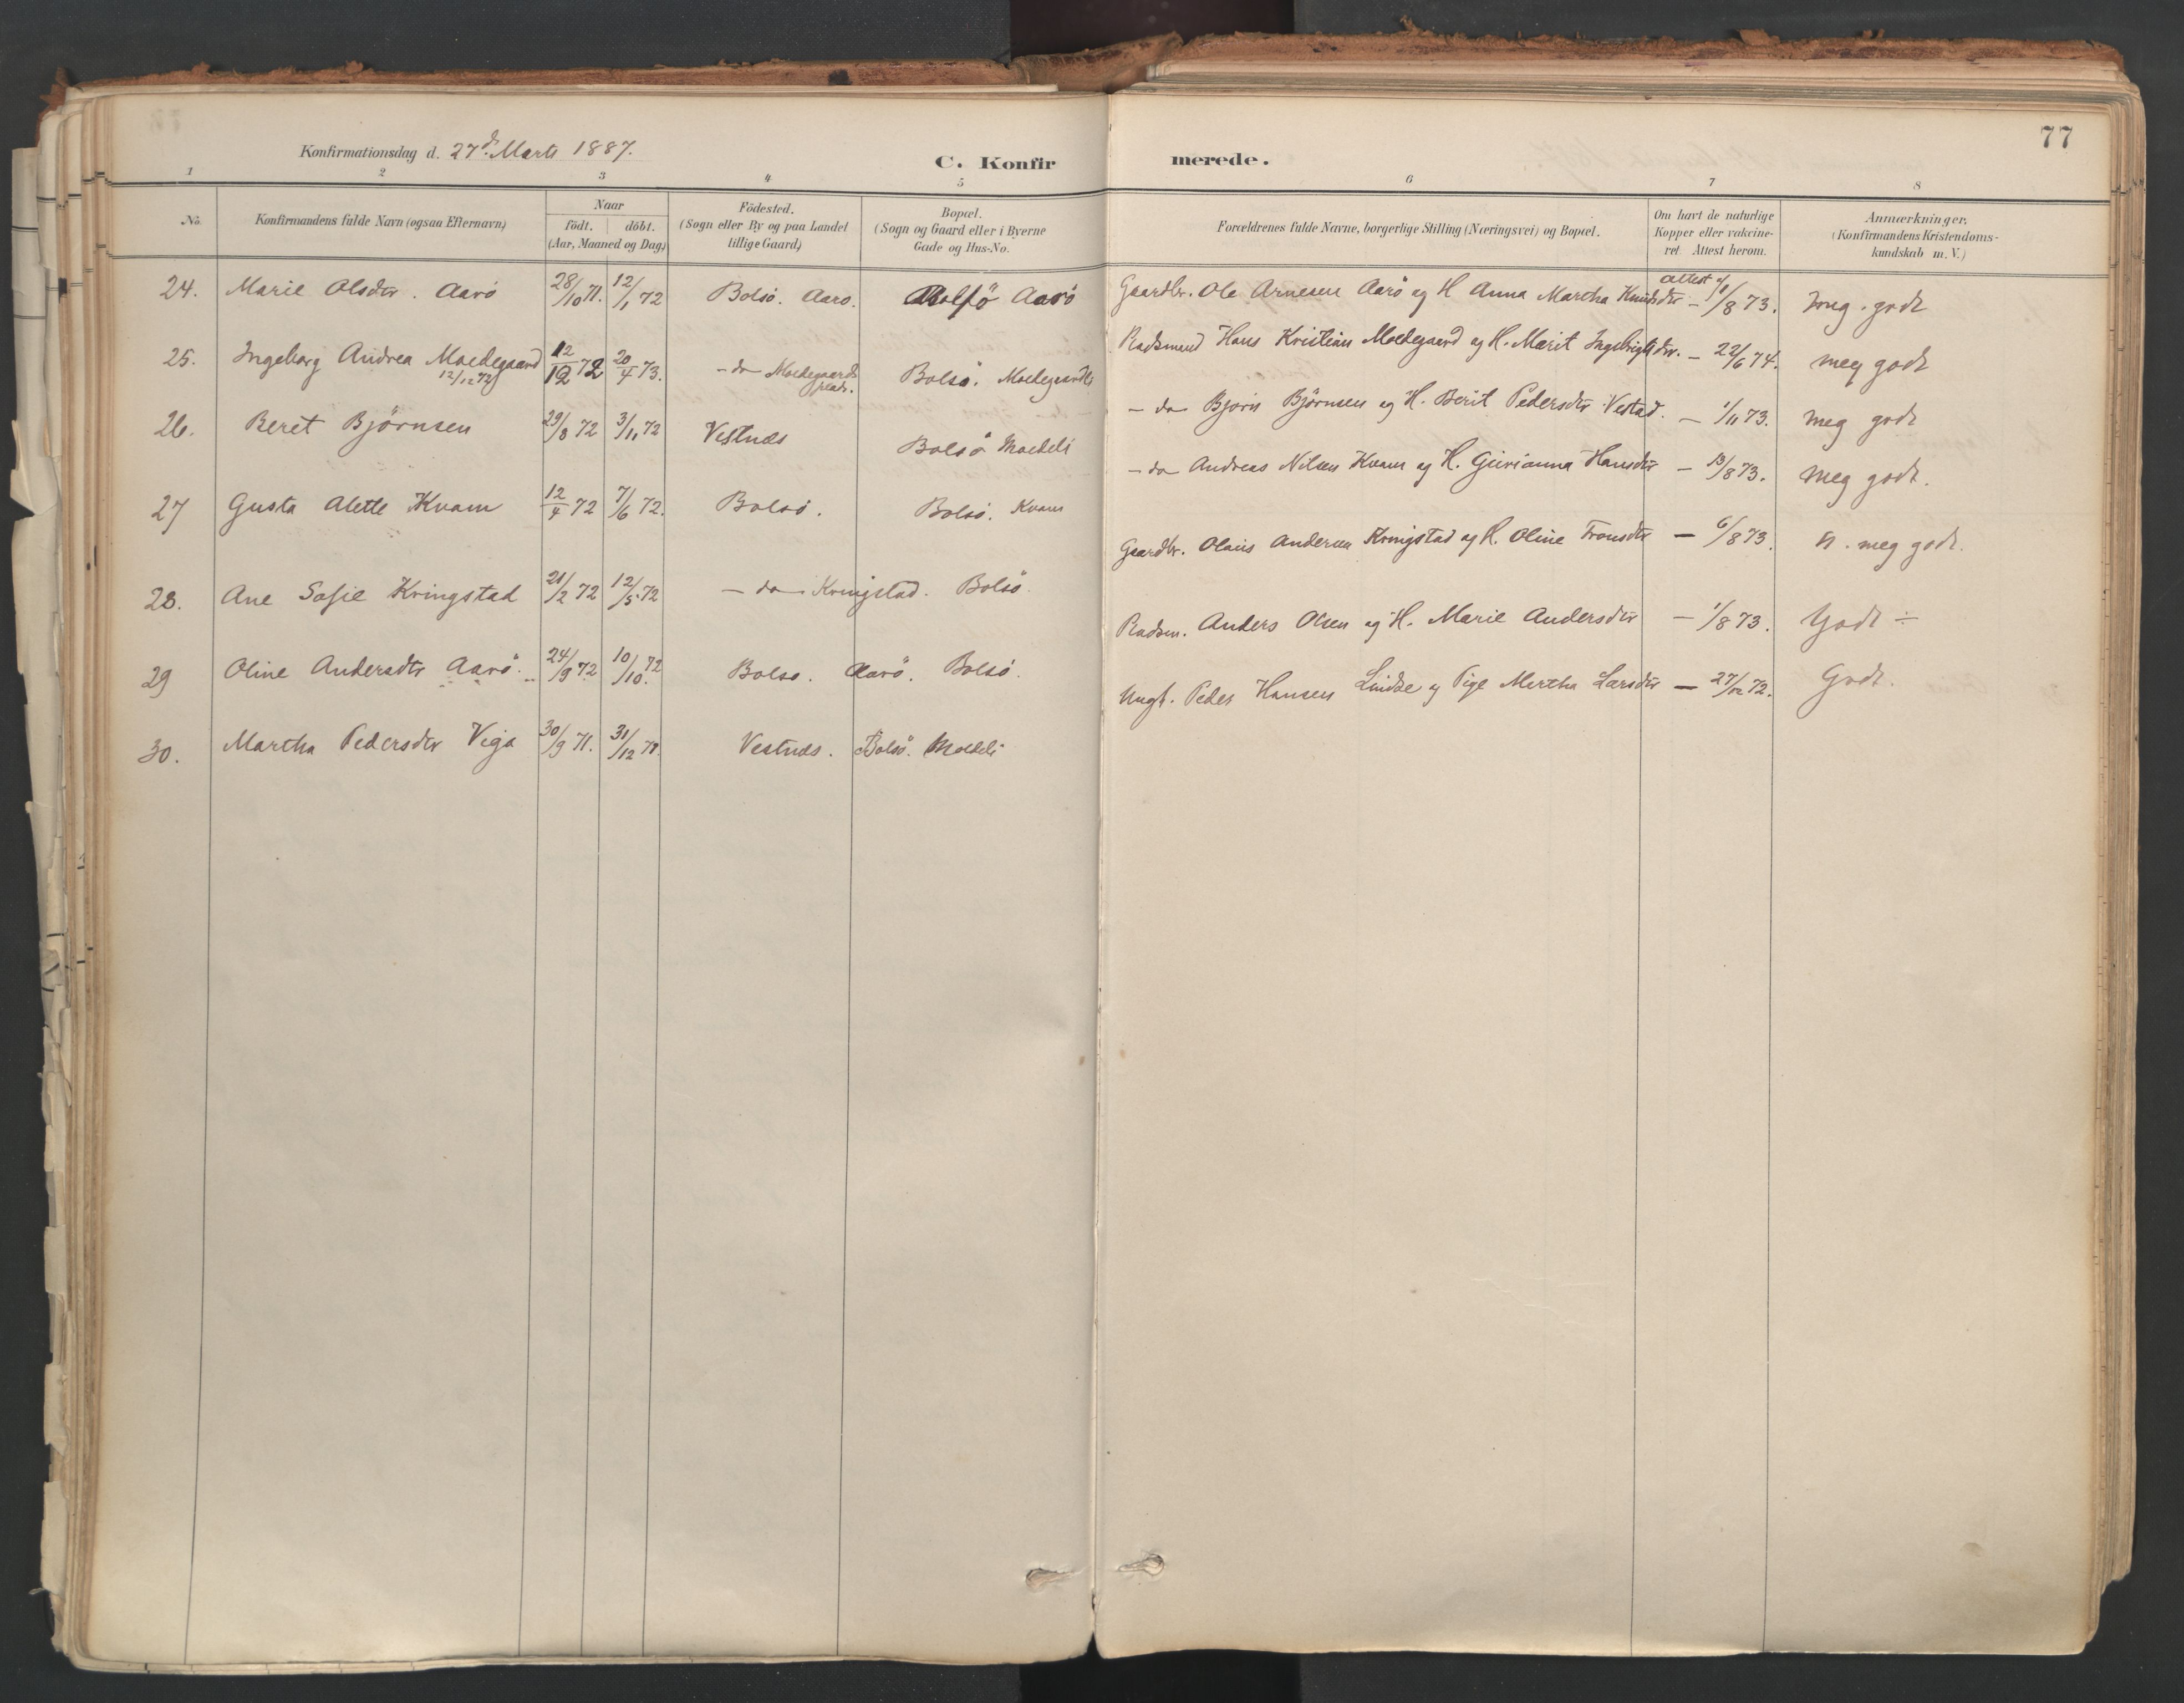 77
Konfirmationsdag d. 27d Marts 1887.
C. Konfirmerede.
1 2 3 4 5 6 7 8
No. Konfirmandens fulde Navn (ogsaa Efternavn) Naar födt. döbt. (Aar, Maaned og Dag) Födested. (Sogn eller By og paa Landet tillige Gaard) Bopæl. (Sogn og Gaard eller i Byerne Gade og Hus-No. Forældrenes fulde Navne, borgerlige Stilling (Næringsvei) og Bopæl. Om havt de naturlige Kopper eller vakcineret. Attest herom. Anmærkninger. (Konfirmandens Kristendomskundskab m. V.)
24. Marie Olsdtr. Aarö 28/10 71. 12/1 72 Bolsö. Aarö. Bolsö Aarö Gaardbr. Ole Arnesen Aarö og H Anna Martha Knudsdtr Attest 1/8 73. meg. godt
25. Ingeborg Andrea Moedegaard 12/12 72 12/12 72 20/4 73. - do - Moedegaards Bolsö. Moedegaardli Pladsmand Hans Kristian Moedegaard og H. Marit Ingebrigtsdtr. - 22/6 74. meg godt
26. Beret Björnsen 29/8 72 3/11 72 Vestnæs Bolsö Moeleli - do - Bjørn Bjørnsen og H. Berit Pedersdtr Vestad. - 1/11 73. meg godt
27 Gusta Alette Kvam 12/4 72 7/6 72. Bolsö. Bolsö. Kvam - do - Andreas Nilsen Kvam og H. Gurianna Hansdtr - 13/8 73. meg godt.
28. Ane Sofie Kringstad 21/2 72 12/5 72 - do - Kringstad. Bolsö. Gaardbr. Olaus Andersen Kringstad og H. Oline Tronsdtr - 6/8 73. n. meg godt.
29 Oline Andersdtr Aarö. 24/9 72 10/10 72 Bolsö. Aarö. Bolsö. Pladsm. Anders Olsen og H. Marie Andersdtr - 1/8 73. Godt ÷
30. Martha Pedersdtr Vega 30/9 71. 31/12 71. Vestnæs. Bolsö. Moeleli Ungk. Peder Hansen og Pige Mertha Larsdtr - 27/12 72. Godt.